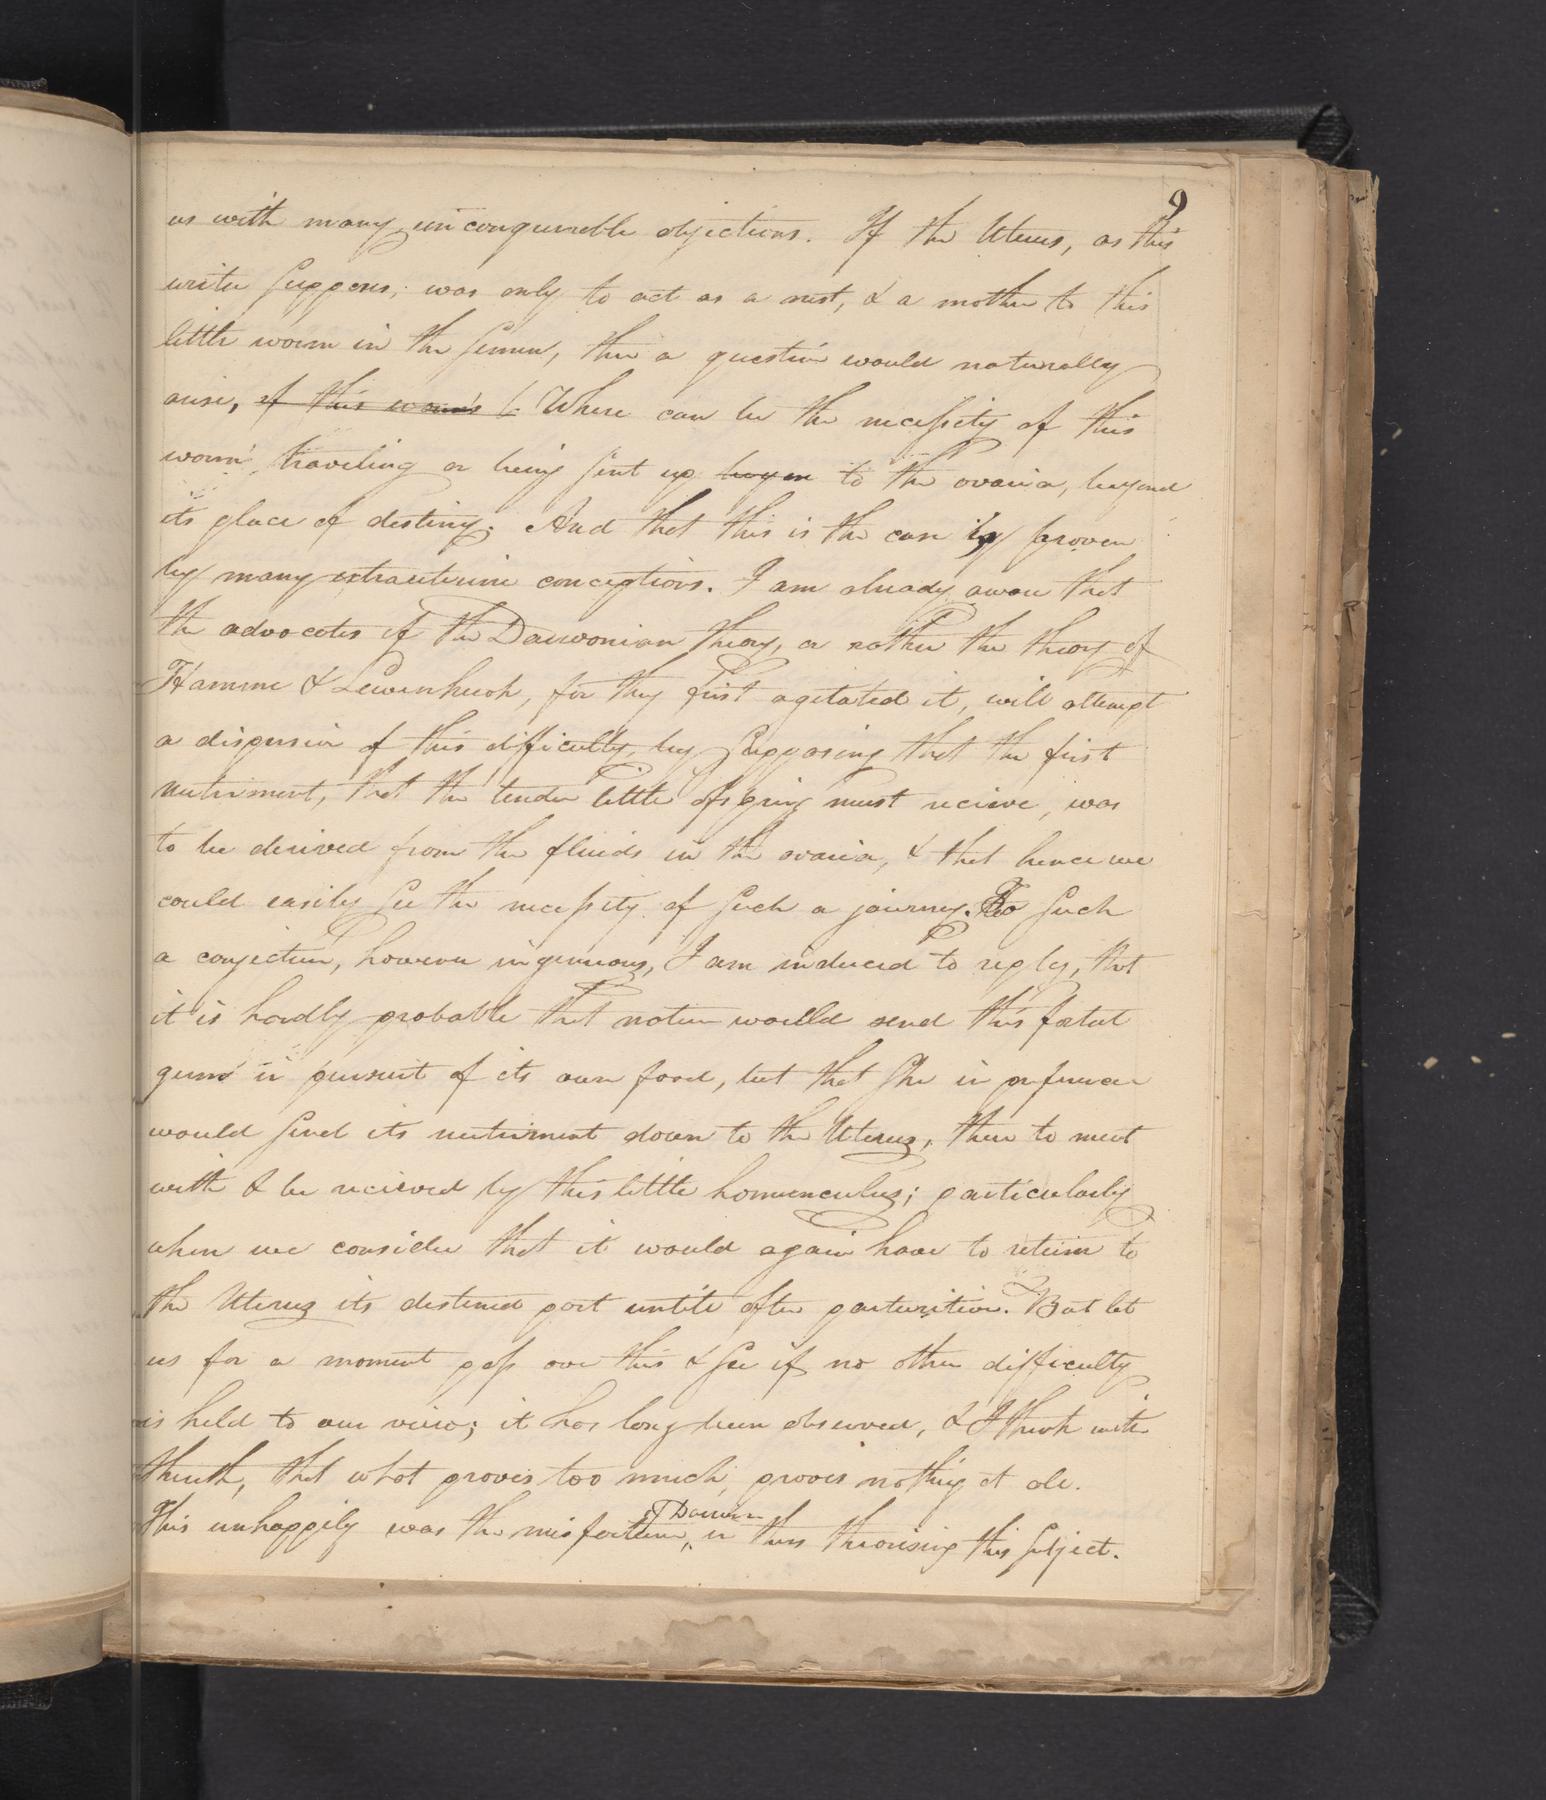 9
us with many unconquerable objections. If the Uterus, as this
writer supposes; was only to act as a nest, & a mother to this
little worm in the semen, then a question would naturally
arise, if this worm's Where can be the necessity of this
worm's traveling or being sent up beyon to the ovaria, beyond
its place of destiny. And that this is the case is proven
by many extrauterine conceptions. I am already aware that
the advocates of the Darwonian theory, or rather the theory of
Hamme & Lewenhuok, for they first agitated it, will attempt
a dispersion of this difficulty, by supposing that the first
nutriment, that the tender little ofspring must recieve, was
to be derived from the fluids in the ovaria, & that hence we
could easily see the necessity of such a journey. To such
a conjecture, however ingenious, I am induced to reply, that
it is hardly probable that nature would send this foetal
germ in pursuit of its own food, but that she in preference
would send its nutriment down to the Uterus, there to meet
with & be recieved by this little homunculus; particularly
when we consider that it would again have to return to
the Uterus its destined port untill after parturition. But let
us for a moment pass over this & see if no other difficulty
is held to our view; it has long been observed, & I think with
thruth, that what proves too much, proves nothing at all.
of Darwin
This unhappily was the misfortune, in thus theorising this subject.